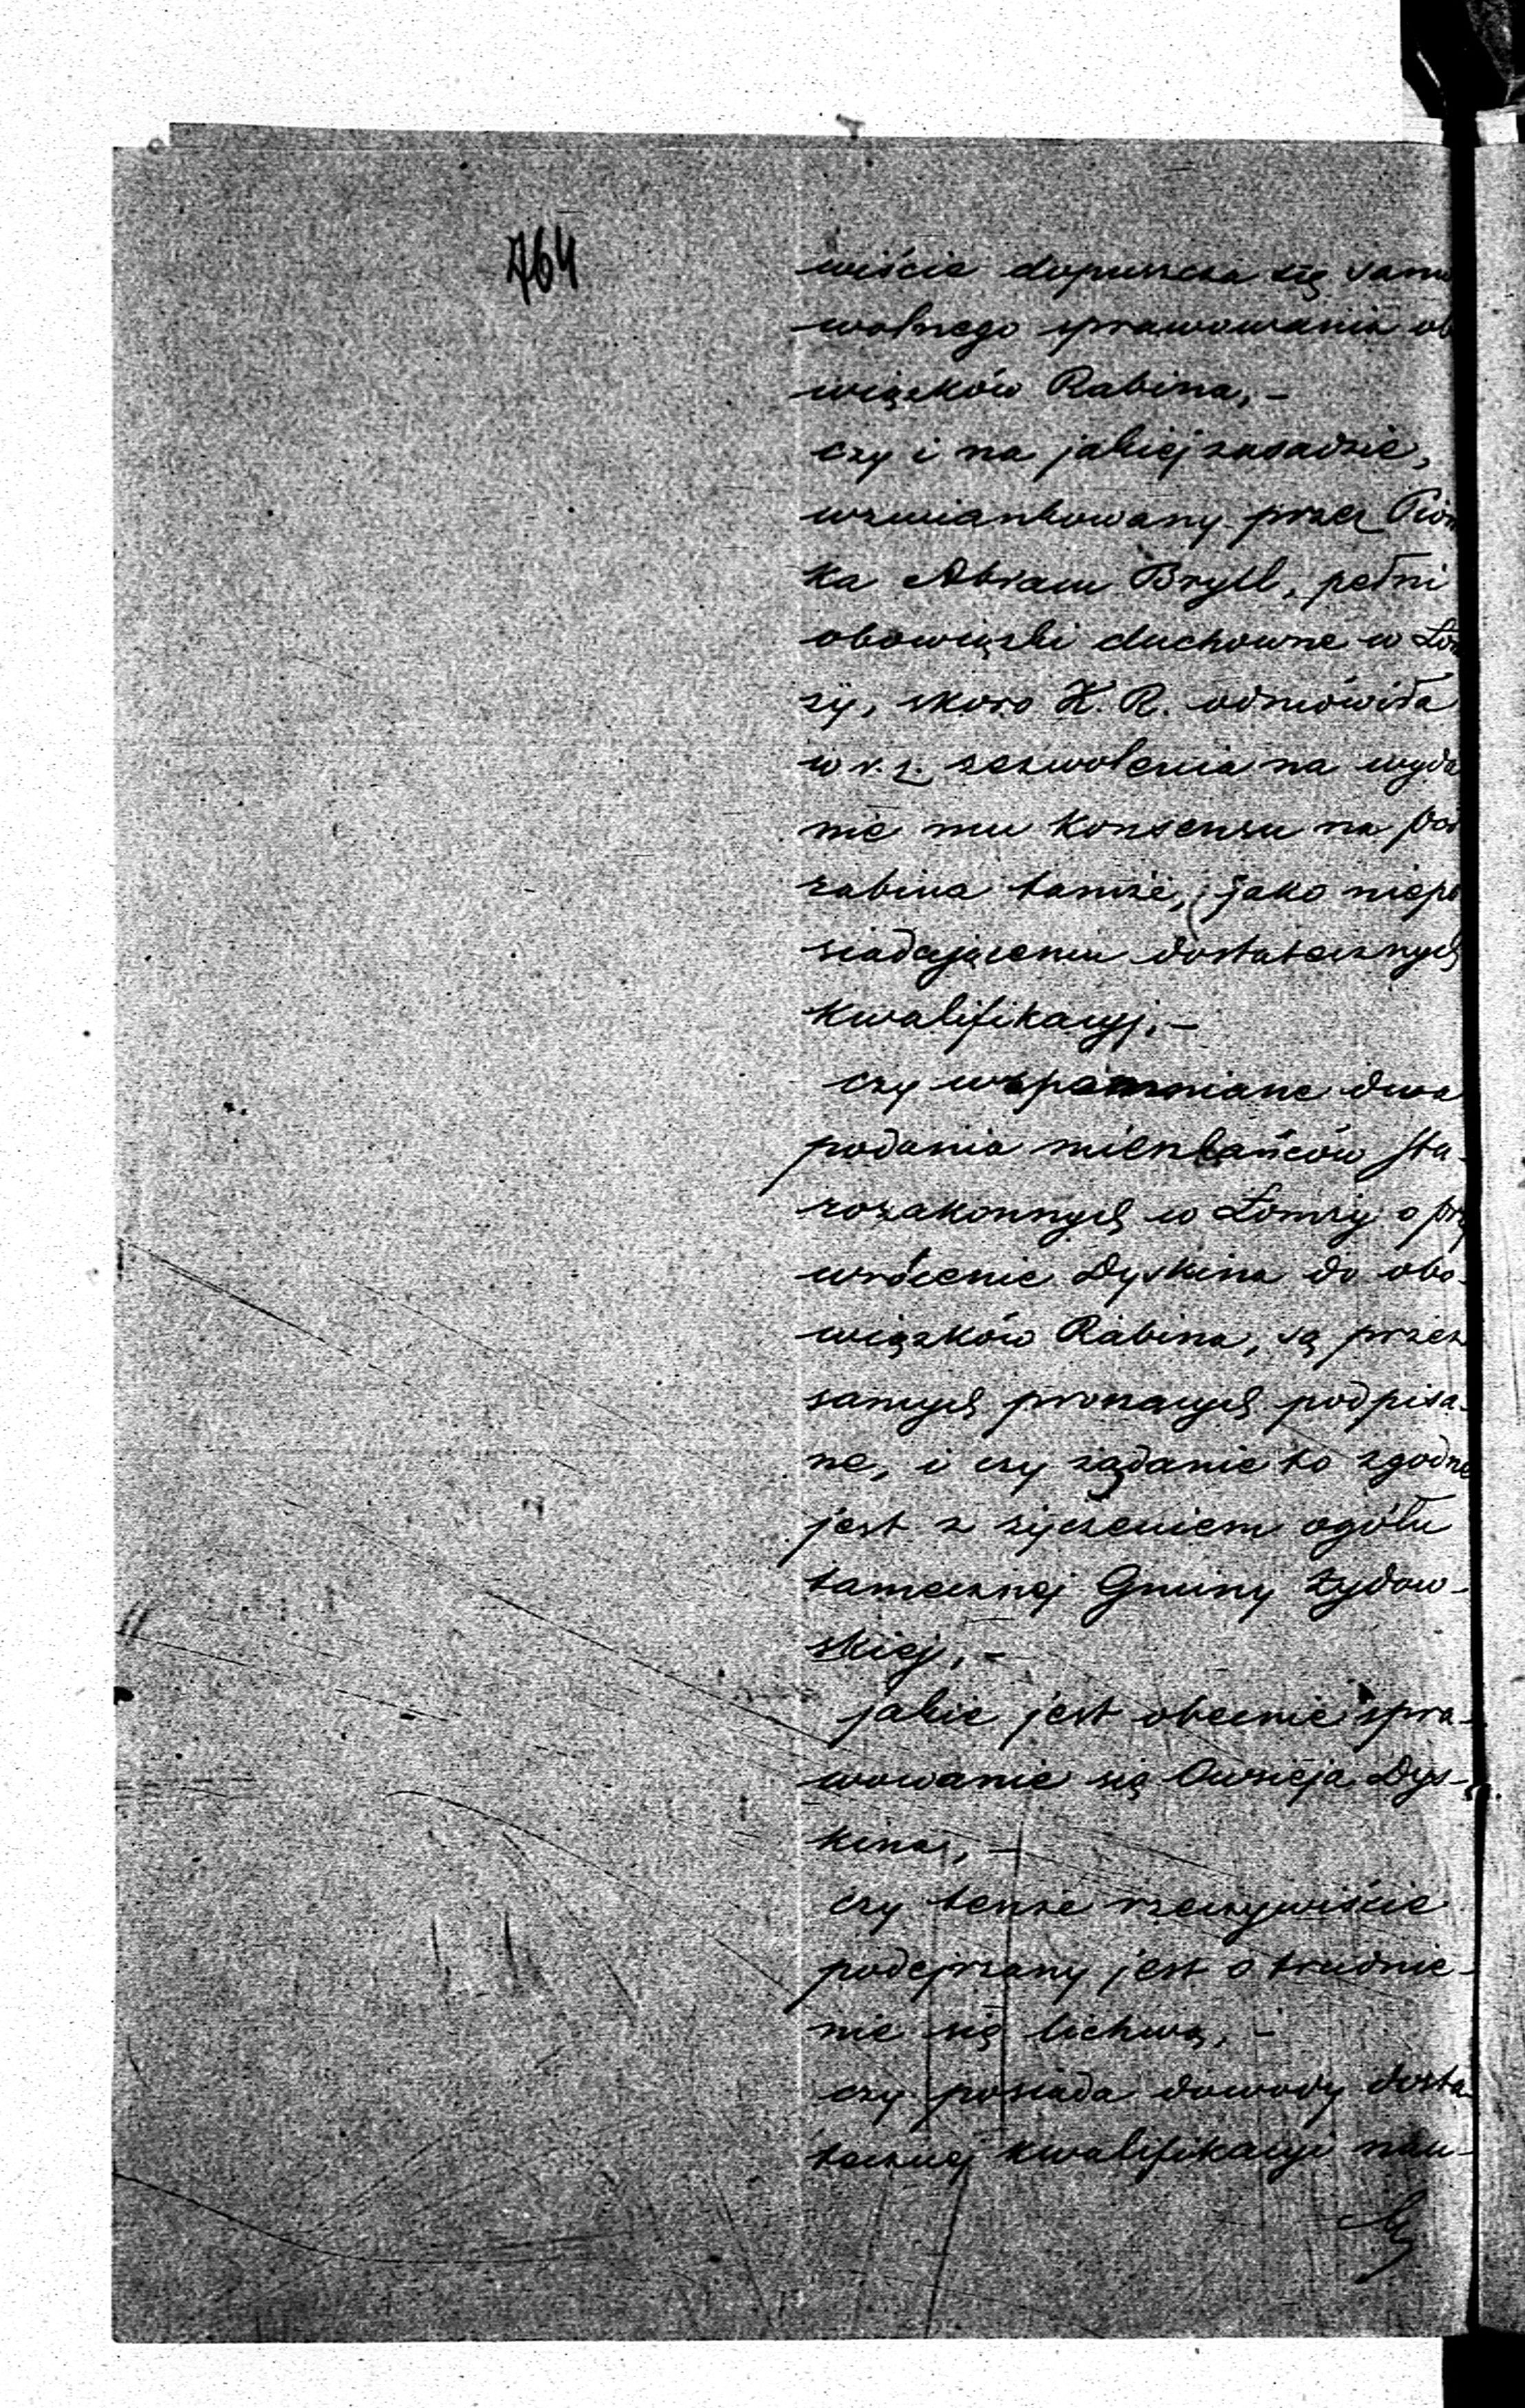 764
wiście dopuszcza się samo
wolnego sprawowania ob
wiązków Rabina, -
czy i na jakiej zasadzie,
wzmiankowany przez Pion
ka Abram Bryll, pełni
obowiązki duchowne w Łom
ży, skoro K. R. odmówiła
w r. z. zezwolenia na wyda
nie mu konsensu na pod
rabina tamże, jako niepo
siadającemu dostatecznych
kwalifikacyj, -
czy wspomniane dwa
podania mieszkańców sta-
rozakonnych w Łomży o przy
wrócenie Dyskina do obo-
wiązków Rabina, są przez
samych proszących podpisa-
ne, i czy żądanie to zgodne
jest z życzeniem ogółu
tamecznej Gminy żydow-
skiej, -
jakie jest obecnie spra-
wowanie się Owsieja Dys-
kina, -
czy tenże rzeczywiście
podejrzany jest o trudnie-
nie się lichwą, -
czy posiada dowody dosta
tecznej kwalifikacyi nau-